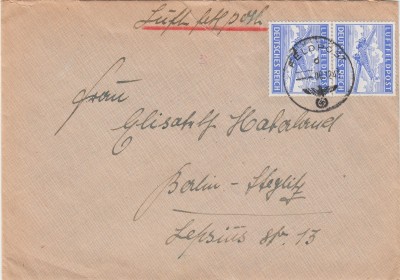 Luftfeldpost
DEUTSCHES REICH
LUFTFELDPOST
DEUTSCHES REICH
LUFTFELDPOST
FELDPOST
d
Frau
Elisabeth Haberland
Berlin-Steglitz
Lepsius str. 13